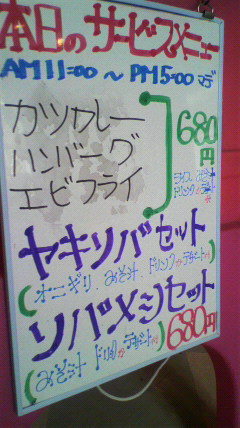 本日のサービスメニュー
AM11:00 ～ PM5:00 マデ
カツカレー
ハンバーグ
エビフライ
680円
ライス みそ汁
ドリンク or デザート
ヤキソバセット
(オニギリ、みそ汁、ドリンク or デザート付)
ソバメシセット
(みそ汁 ドリンク or デザート付)
680円